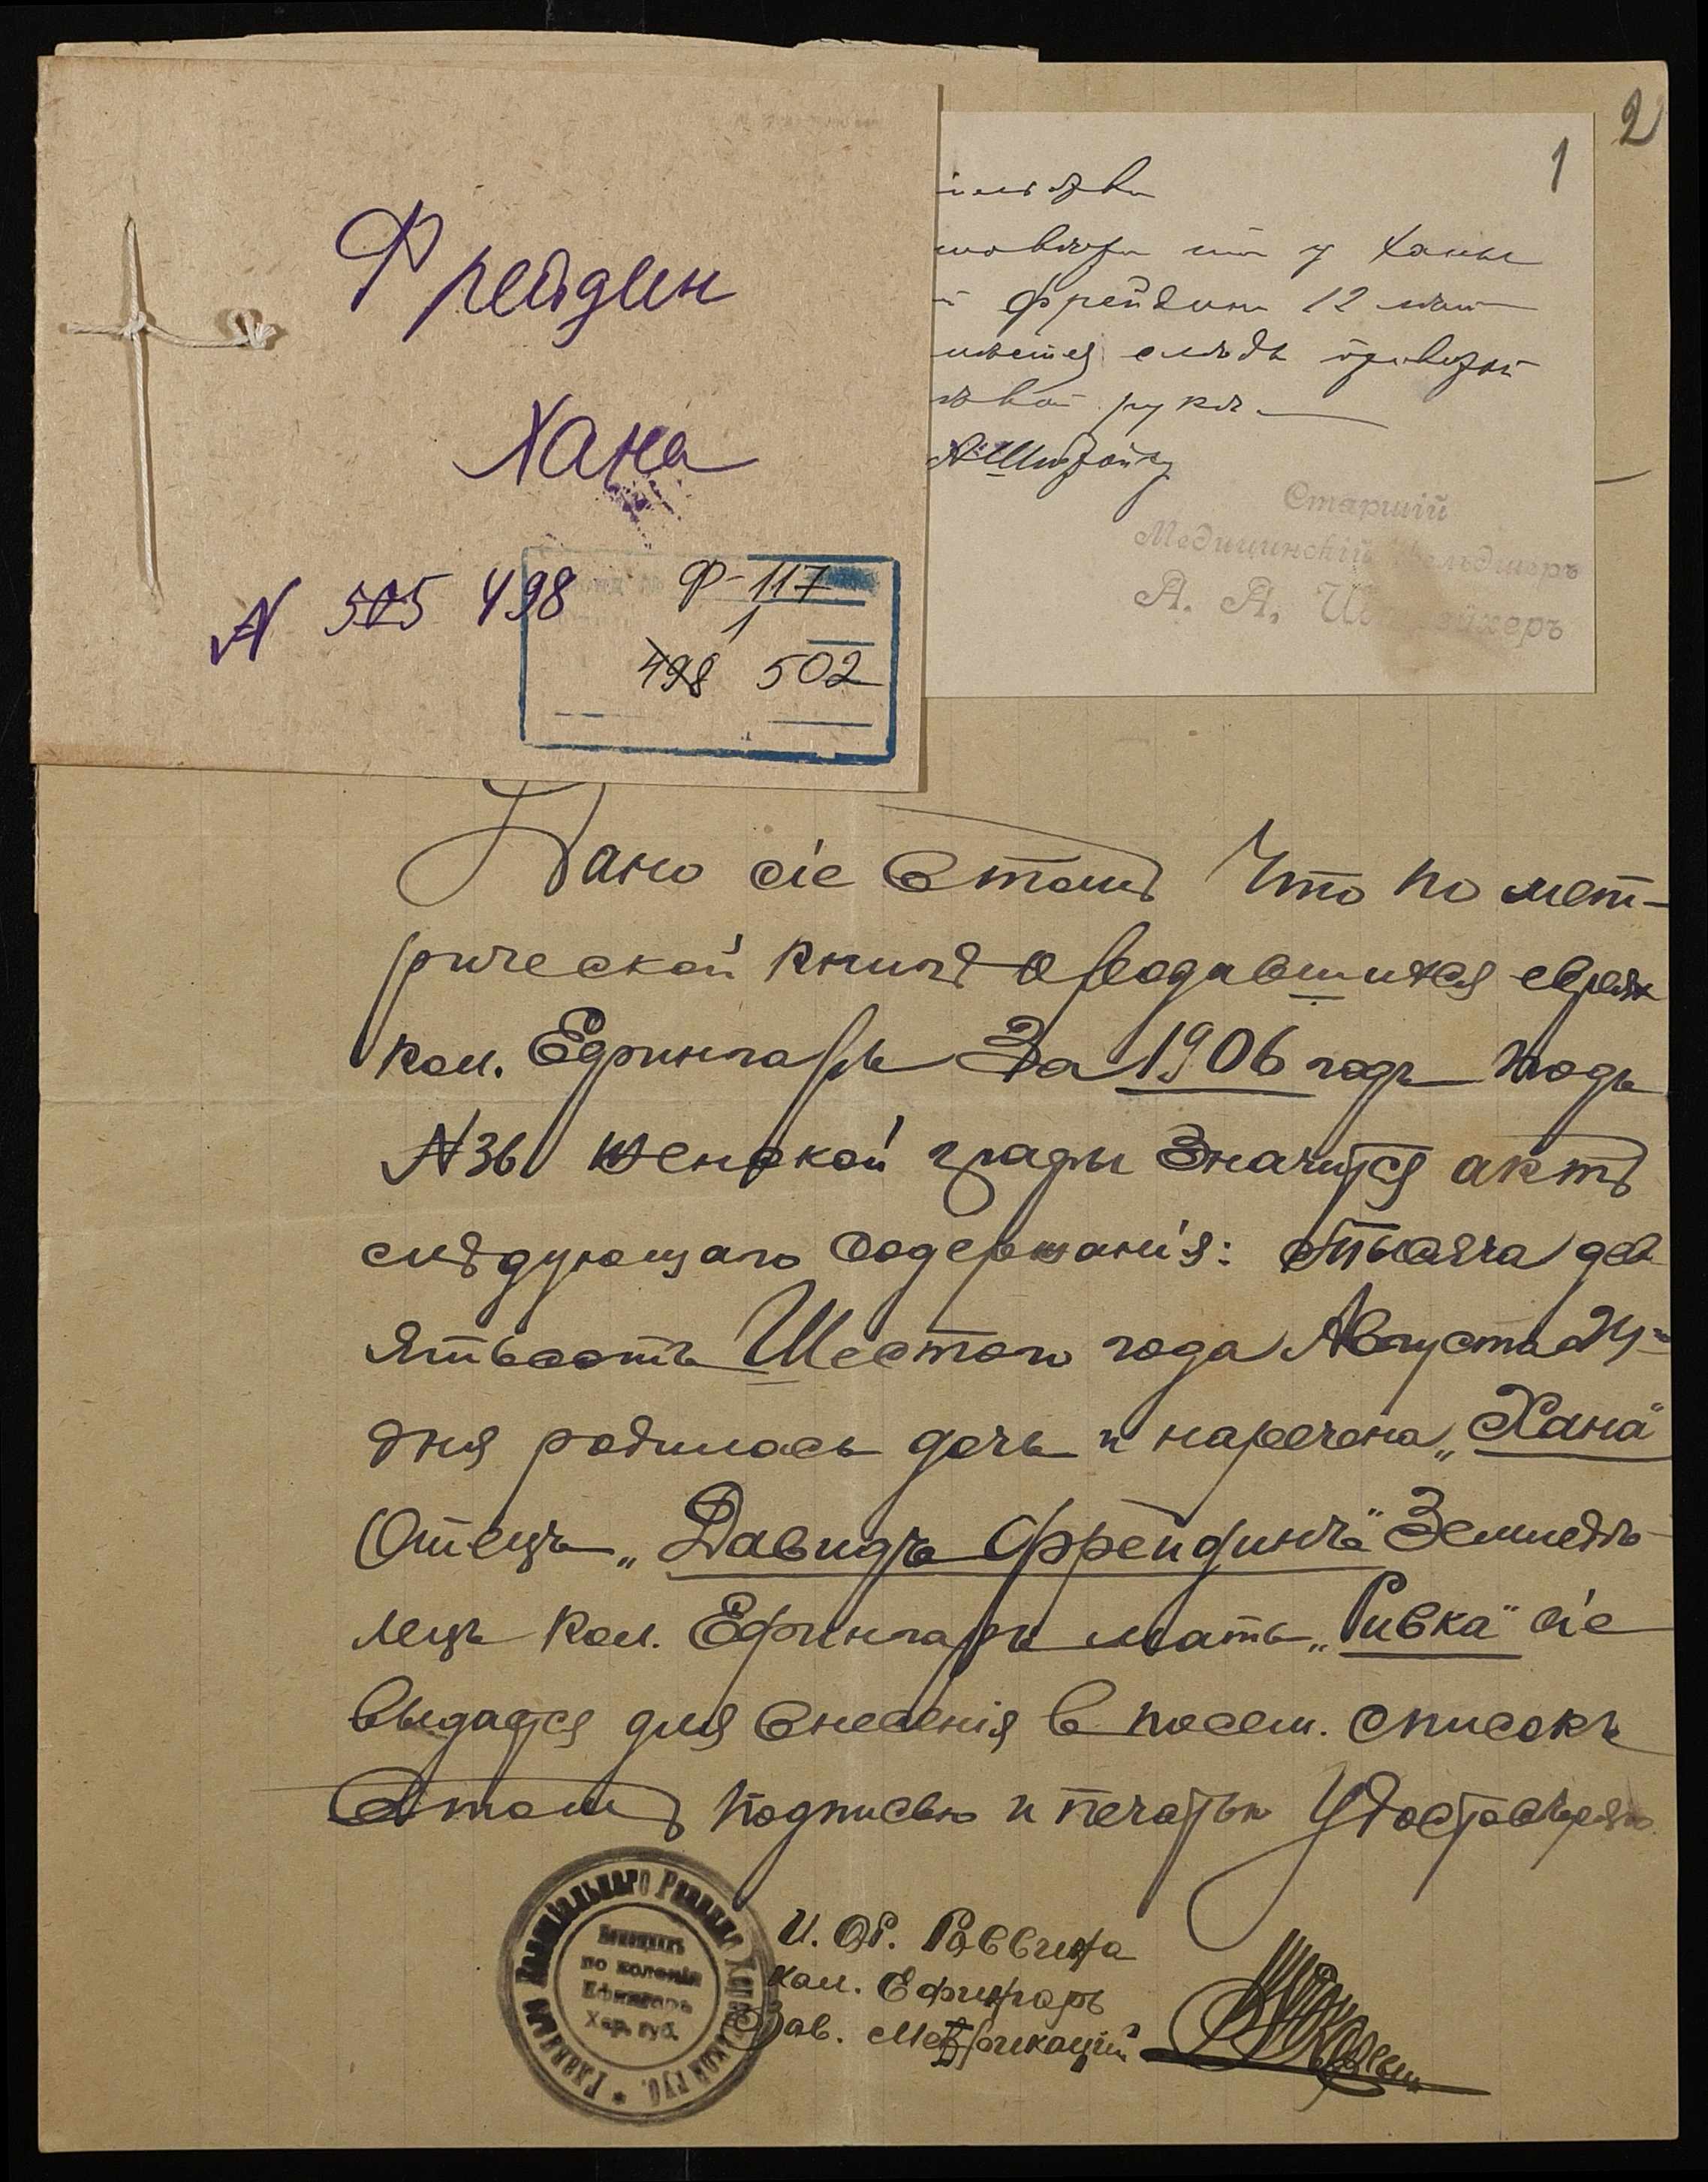 Фрейдин
Хана
N 505 498
Ф-117
1
498 502
2
1
у Ханы
Фрейдинъ 12 мая
имеется следъ
рукѣ
Старшій
Медицинскій Фельдшеръ
А. А.
Дано сіе в томъ Что по мет-
рической книгѣ о родившихся евреях
кол. Ефингарь За 1906 годъ подъ
N 36 женской графы Значится актъ
слѣдующаго содержанія: Тысяча дев
ятьсотъ Шестого года Августа 24
дня родилась дочь и наречена „Хана"
Отецъ „Давидъ Фрейдинъ" Земледѣ-
лецъ кол. Ефингаръ мать „Ривка" сіе
выдается для внесенія в посем. списокъ
в томъ подписью и печатью Удостовѣряю.
И. Об. Раввина
кол. Ефингарь
Зав. Метрикаціи
Раввина Херсонской губ.
по колоніи
Ефингаръ
Хер. губ.